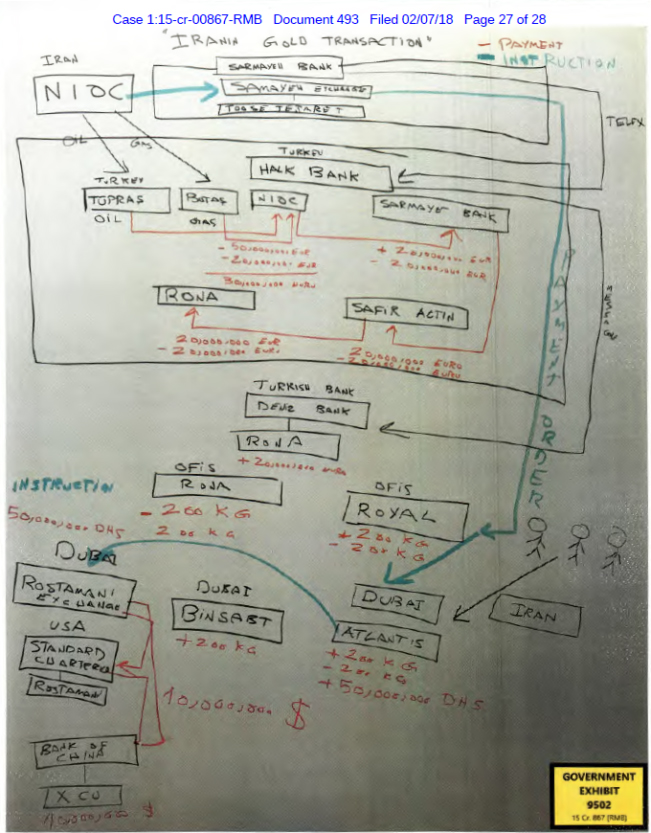 Case 1:15-cr-00867-RMB Document 493 Filed 02/07/18 Page 27 of 28
"IRANIN GOLD TRANSACTION"
- PAYMENT
- INSTRUCTION
IRAN
NIOC
SARMAYEH BANK
SAMAYEH EXCHANGE
TOOSE TEJARET
TELEX
OIL
GAS
TURKEY
HALK BANK
TURKEY
TUPRAS
OIL
BOTAS
GAS
NIOC
SARMAYEH BANK
- 50,000,000 EUR
- 20,000,000 EUR
30,000,000 EURO
+ 20,000,000 EUR
- 20,000,000 EUR
RONA
SAFIR ALTIN
20,000,000 EUR
- 20,000,000 EURO
20,000,000 EURO
- 20,000,000 EURO
MESSAGE
PAYMENT ORDER
TURKISH BANK
DENIZ BANK
RONA
+ 20,000,000 EURO
OFIS
RONA
- 200 KG
200 KG
OFIS
ROYAL
+ 200 KG
- 200 KG
INSTRUCTION
50,000,000 DHS
DUBAI
ROSTAMANI
EXCHANGE
DUBAI
BINSABT
+ 200 KG
DUBAI
ATLANTIS
+ 200 KG
- 200 KG
+ 50,000,000 DHS
IRAN
USA
STANDARD
CHARTERED
ROSTAMAN
10,000,000 $
BANK OF
CHINA
X CO
10,000,000 $
GOVERNMENT
EXHIBIT
9502
15 Cr. 867 (RMB)